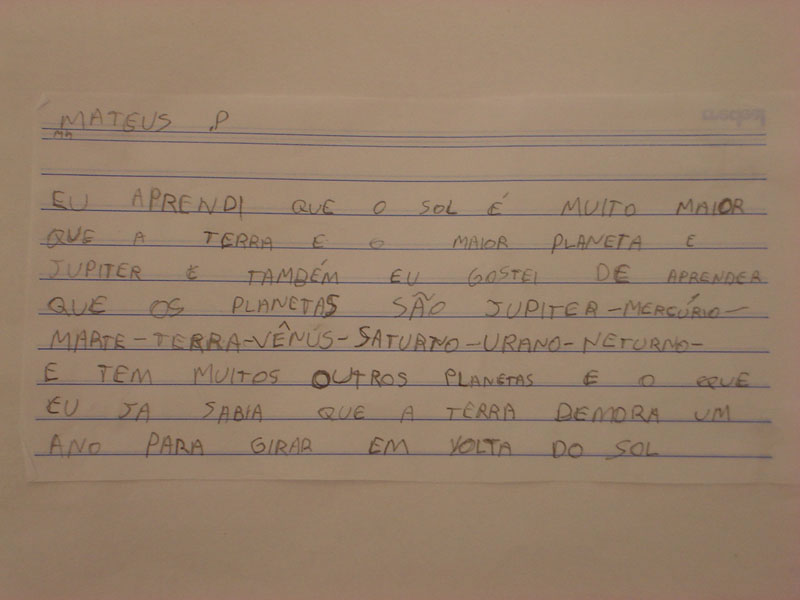 MATEUS .P
EU APRENDI QUE O SOL É MUITO MAIOR
QUE A TERRA E O MAIOR PLANETA E
JUPITER E TAMBÉM EU GOSTEI DE APRENDER
QUE OS PLANETAS SÃO JUPITER-MERCÚRIO-
MARTE-TERRA-VÊNÚS-SATURNO-URANO-NETURNO-
E TEM MUITOS OUTROS PLANETAS E O QUE
EU JA SABIA QUE A TERRA DEMORA UM
ANO PARA GIRAR EM VOLTA DO SOL